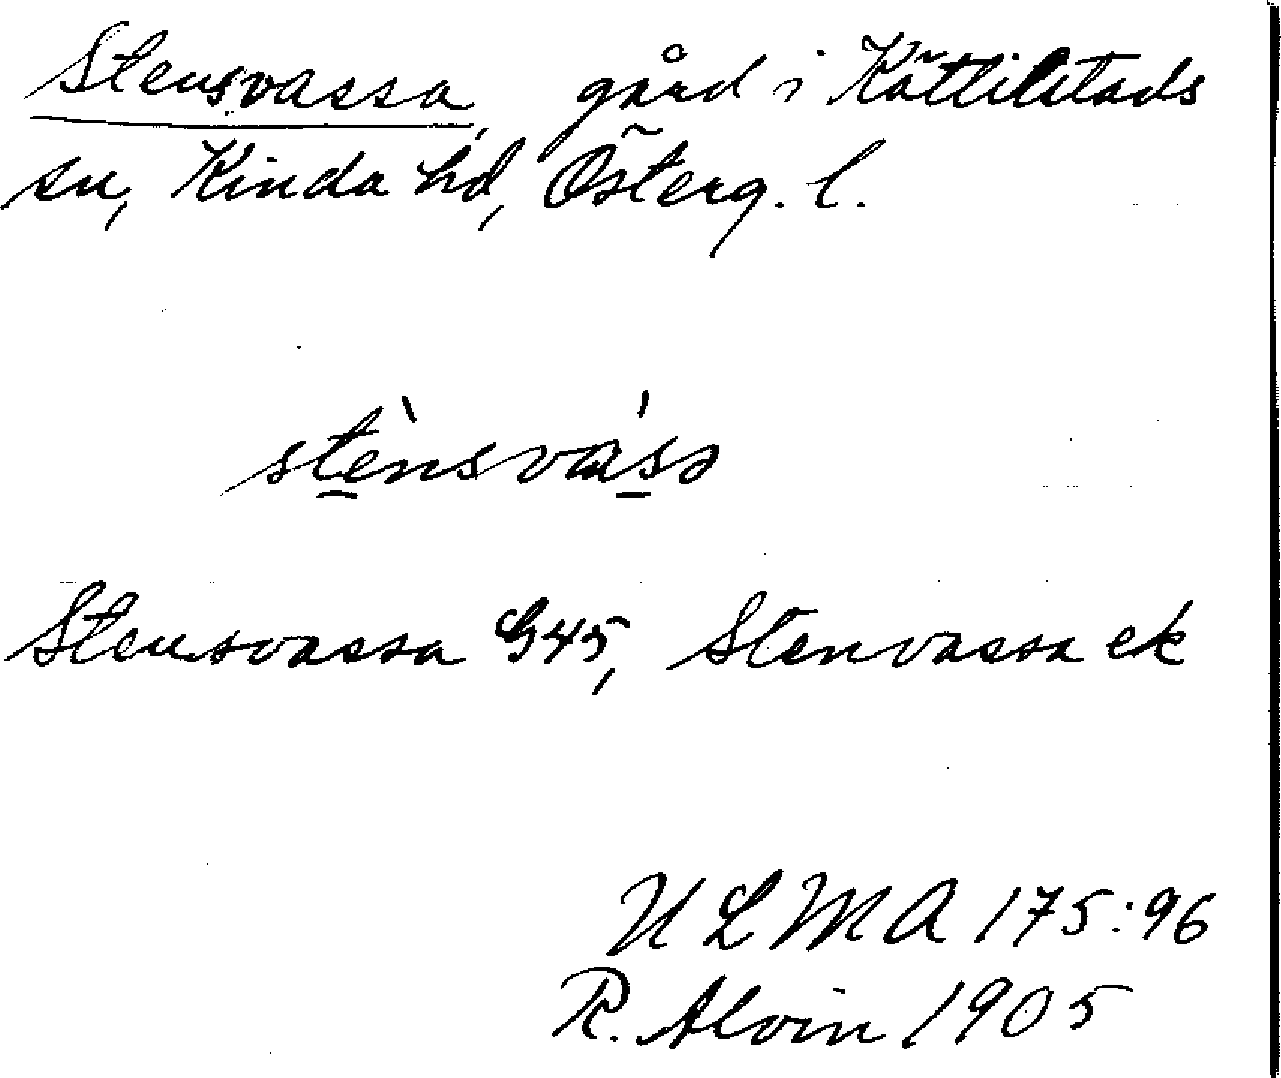 Stensvassa, gård i Kättilstads
sn, Kinda hd, Österg. l.
stènsvás̱ə
Stensvassa G45, Stenvassa ek
ULMA 175:96
R. Alvin 1905